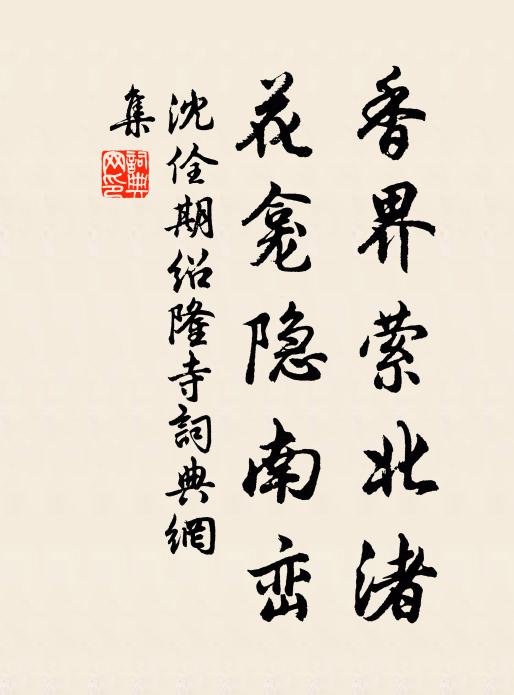 香界萦北渚
花龛隐南峦
沈佺期绍隆寺詞典網
集
詞典
网印